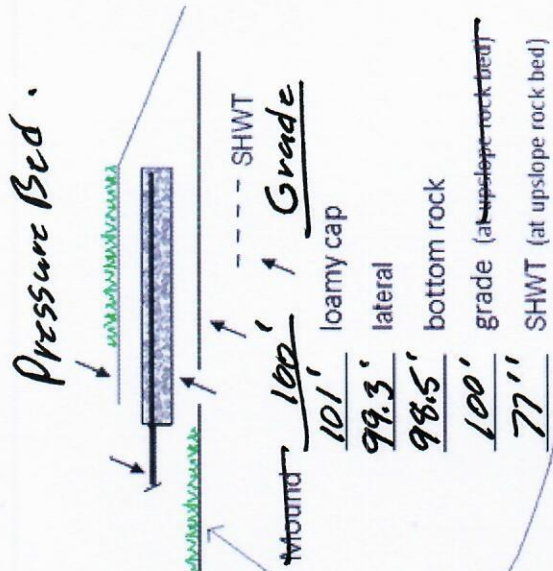 Pressure Bed.
---- SHWT
Mound 100' Grade
101' loamy cap
99.3' lateral
98.5' bottom rock
100' grade (at upslope rock bed)
77" SHWT (at upslope rock bed)